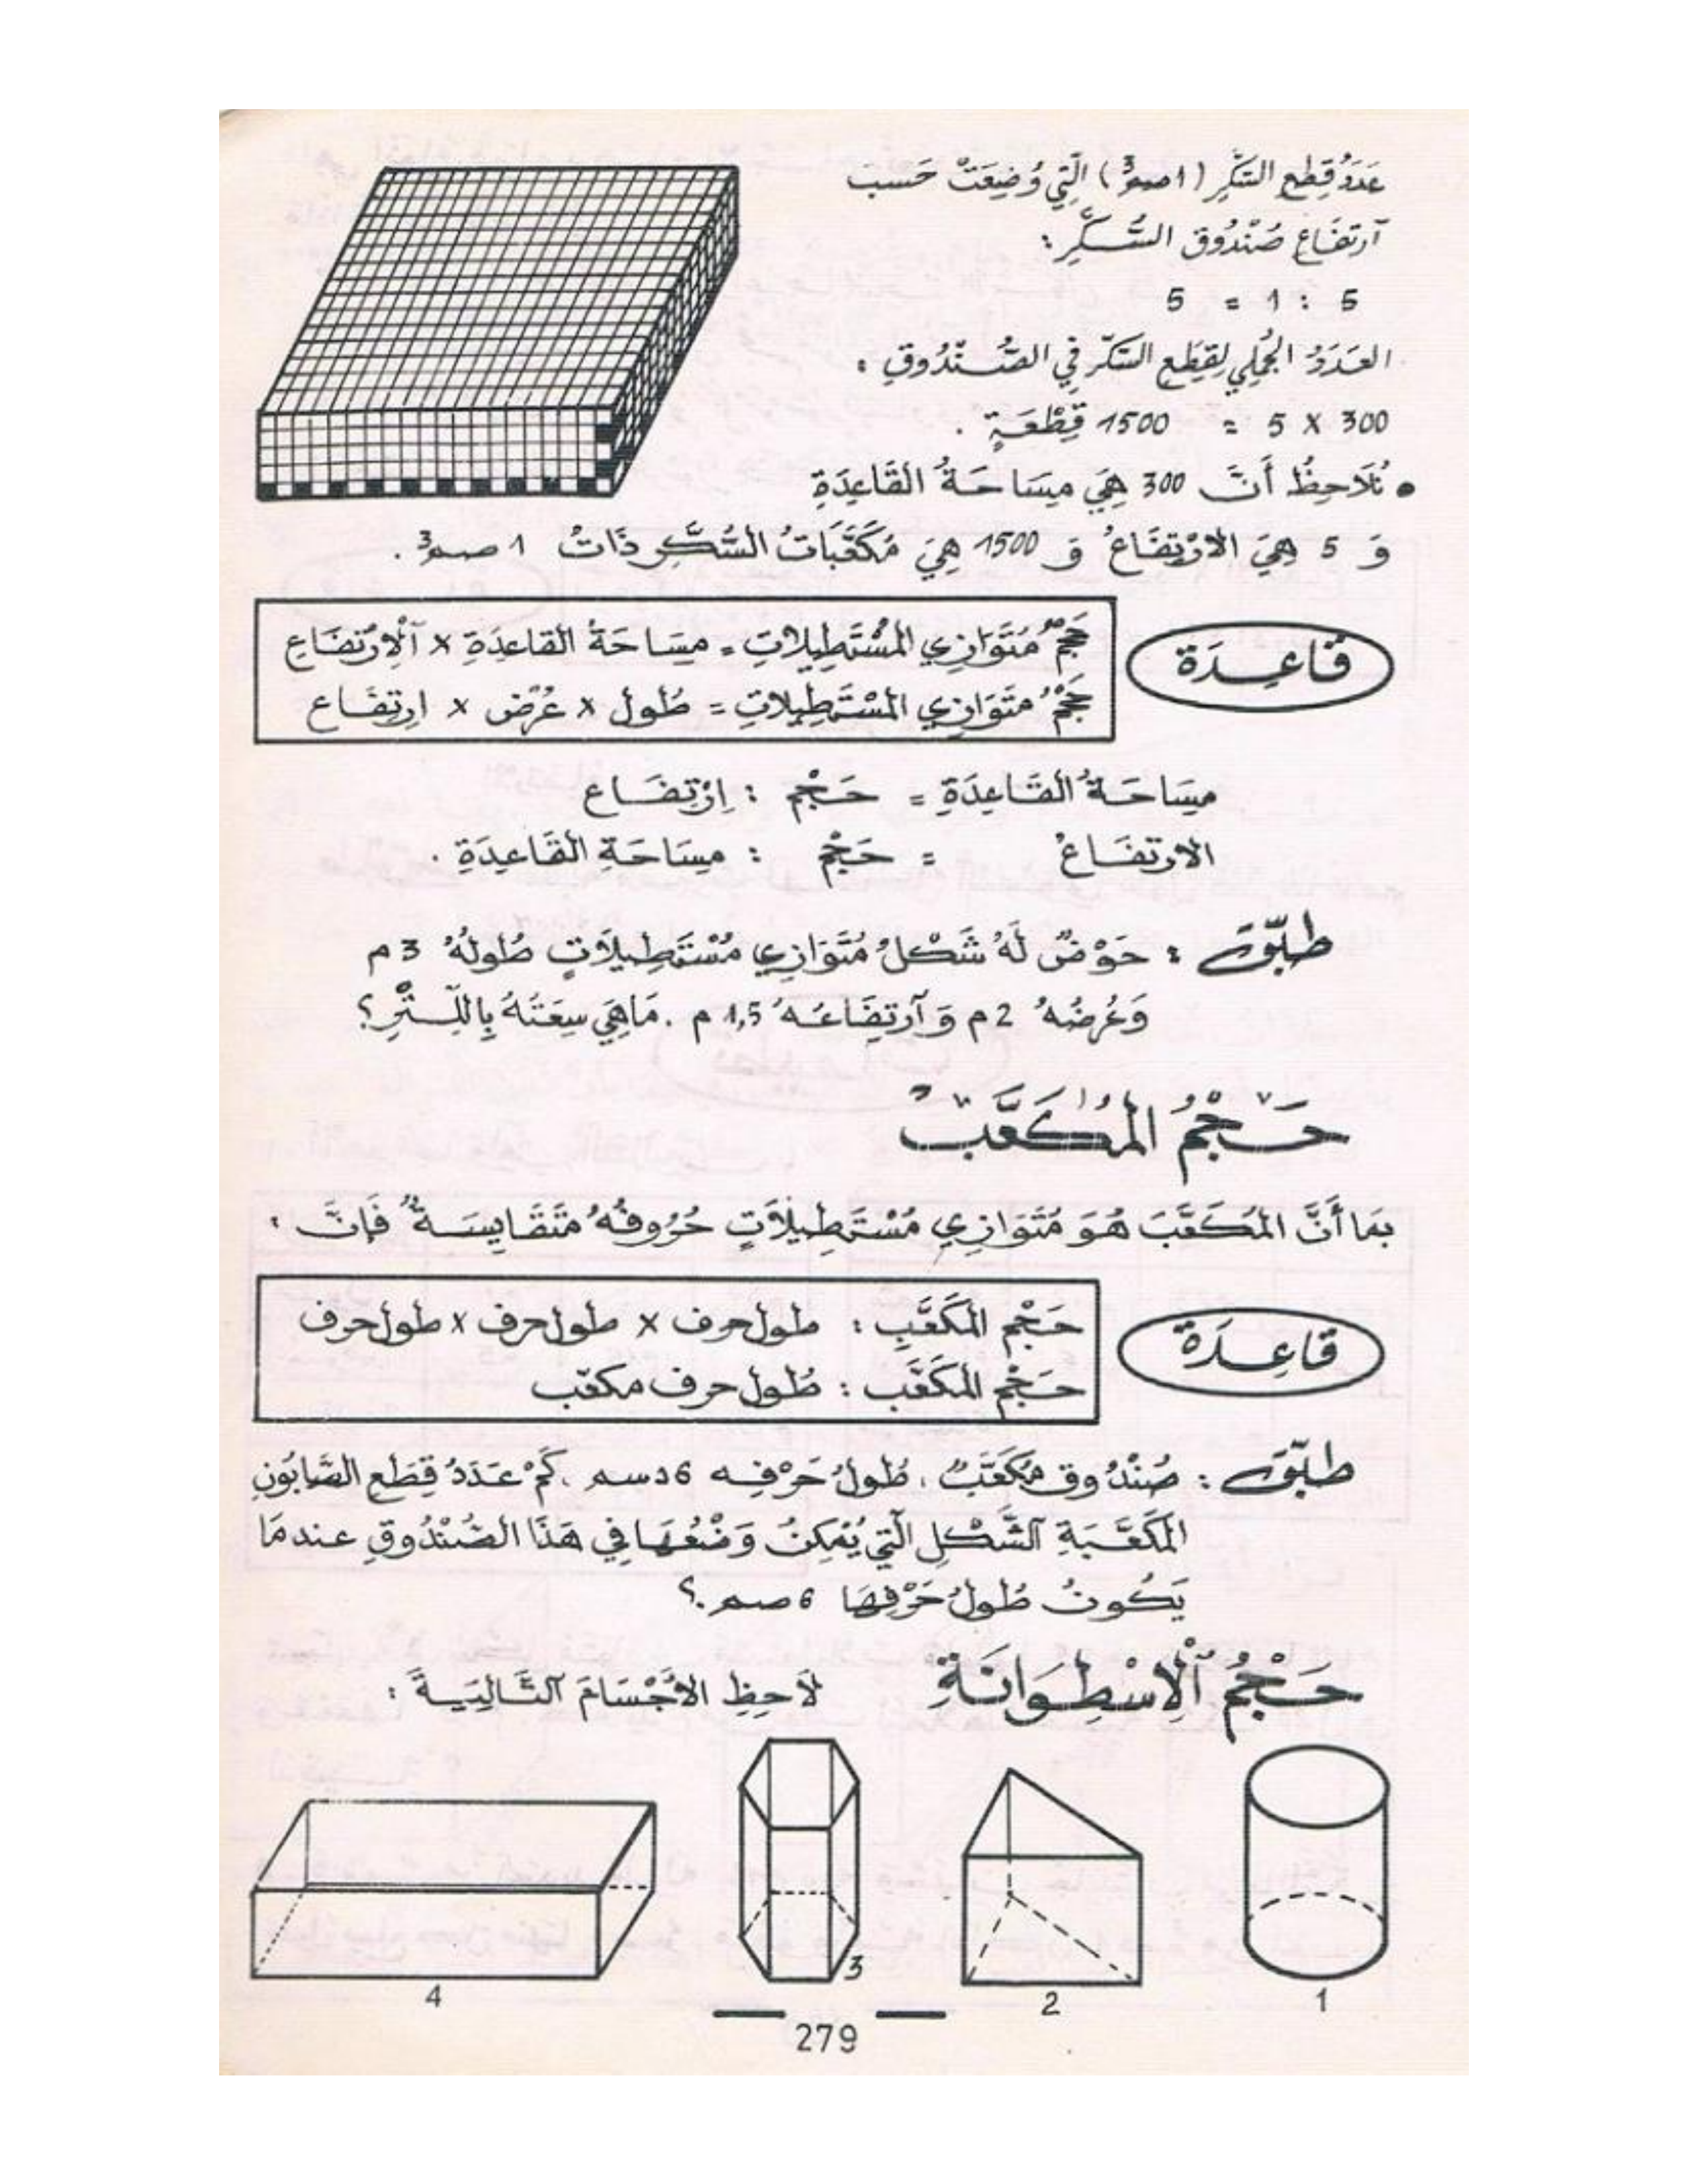 عَدَدُ قِطَعِ السُّكَّرِ (1 صم³) الَّتِي وُضِعَتْ حَسَبَ
آرتِفَاعِ صُنْدُوقِ السُّكَّرِ:
5 : 1 = 5
العَدَدُ الجُمْلِي لِقِطَعِ السُّكَّرِ فِي الصُّنْدُوقِ :
300 X 5 = 1500 قِطْعَةٍ .
• نُلَاحِظُ أَنَّ 300 هِيَ مِسَاحَةُ القَاعِدَةِ
وَ 5 هِيَ الارْتِفَاعُ وَ 1500 هِيَ مُكَعَّبَاتُ السُّكَّرِ ذَاتُ 1 صم³ .
قَاعِدَة
حَجْمُ مُتَوَازِي المُسْتَطِيلَاتِ = مِسَاحَةُ القَاعِدَةِ x آلْاِرْتِفَاعِ
حَجْمُ مُتَوَازِي المُسْتَطِيلَاتِ = طُول x عُرْض x ارتِفَاع
مِسَاحَةُ القَاعِدَةِ = حَجْم : اِرْتِفَاع
الارتِفَاعُ = حَجْم : مِسَاحَةِ القَاعِدَةِ .
طَبِّقْ : حَوْضٌ لَهُ شَكْلُ مُتَوَازِي مُسْتَطِيلَاتٍ طُولُهُ 3 م
وَعُرضُهُ 2 م وَآرتِفَاعُهُ 1,5 م . مَاهِيَ سِعَتُهُ بِاللِّتْرِ ؟
حَجْمُ المُكَعَّبِ
بِمَا أَنَّ المُكَعَّبَ هُوَ مُتَوَازِي مُسْتَطِيلَاتٍ حُرُوفُهُ مُتَقَايِسَةٌ فَإِنَّ :
قَاعِدَة
حَجْم المُكَعَّبِ : طول حرف x طول حرف x طول حرف
حَجْم المُكَعَّب : طُول حرف مكعّب
طَبِّقْ : صُنْدُوق مُكَعَّبٌ ، طُولُ حَرْفِه 6 دسم . كَمْ عَدَدُ قِطَعِ الصَّابُونِ
المُكَعَّبَةِ آلشَّكْلِ الَّتِي يُمْكِنُ وَضْعُهَا فِي هَذَا الصُّنْدُوقِ عِندمَا
يَكُونُ طُولُ حَرْفِهَا 6 صم .؟
حَجْمُ آلْاِسْطِوَانَةِ لَاحِظِ الأَجْسَامَ آلتَّالِيَةَ :
1
2
3
4
279